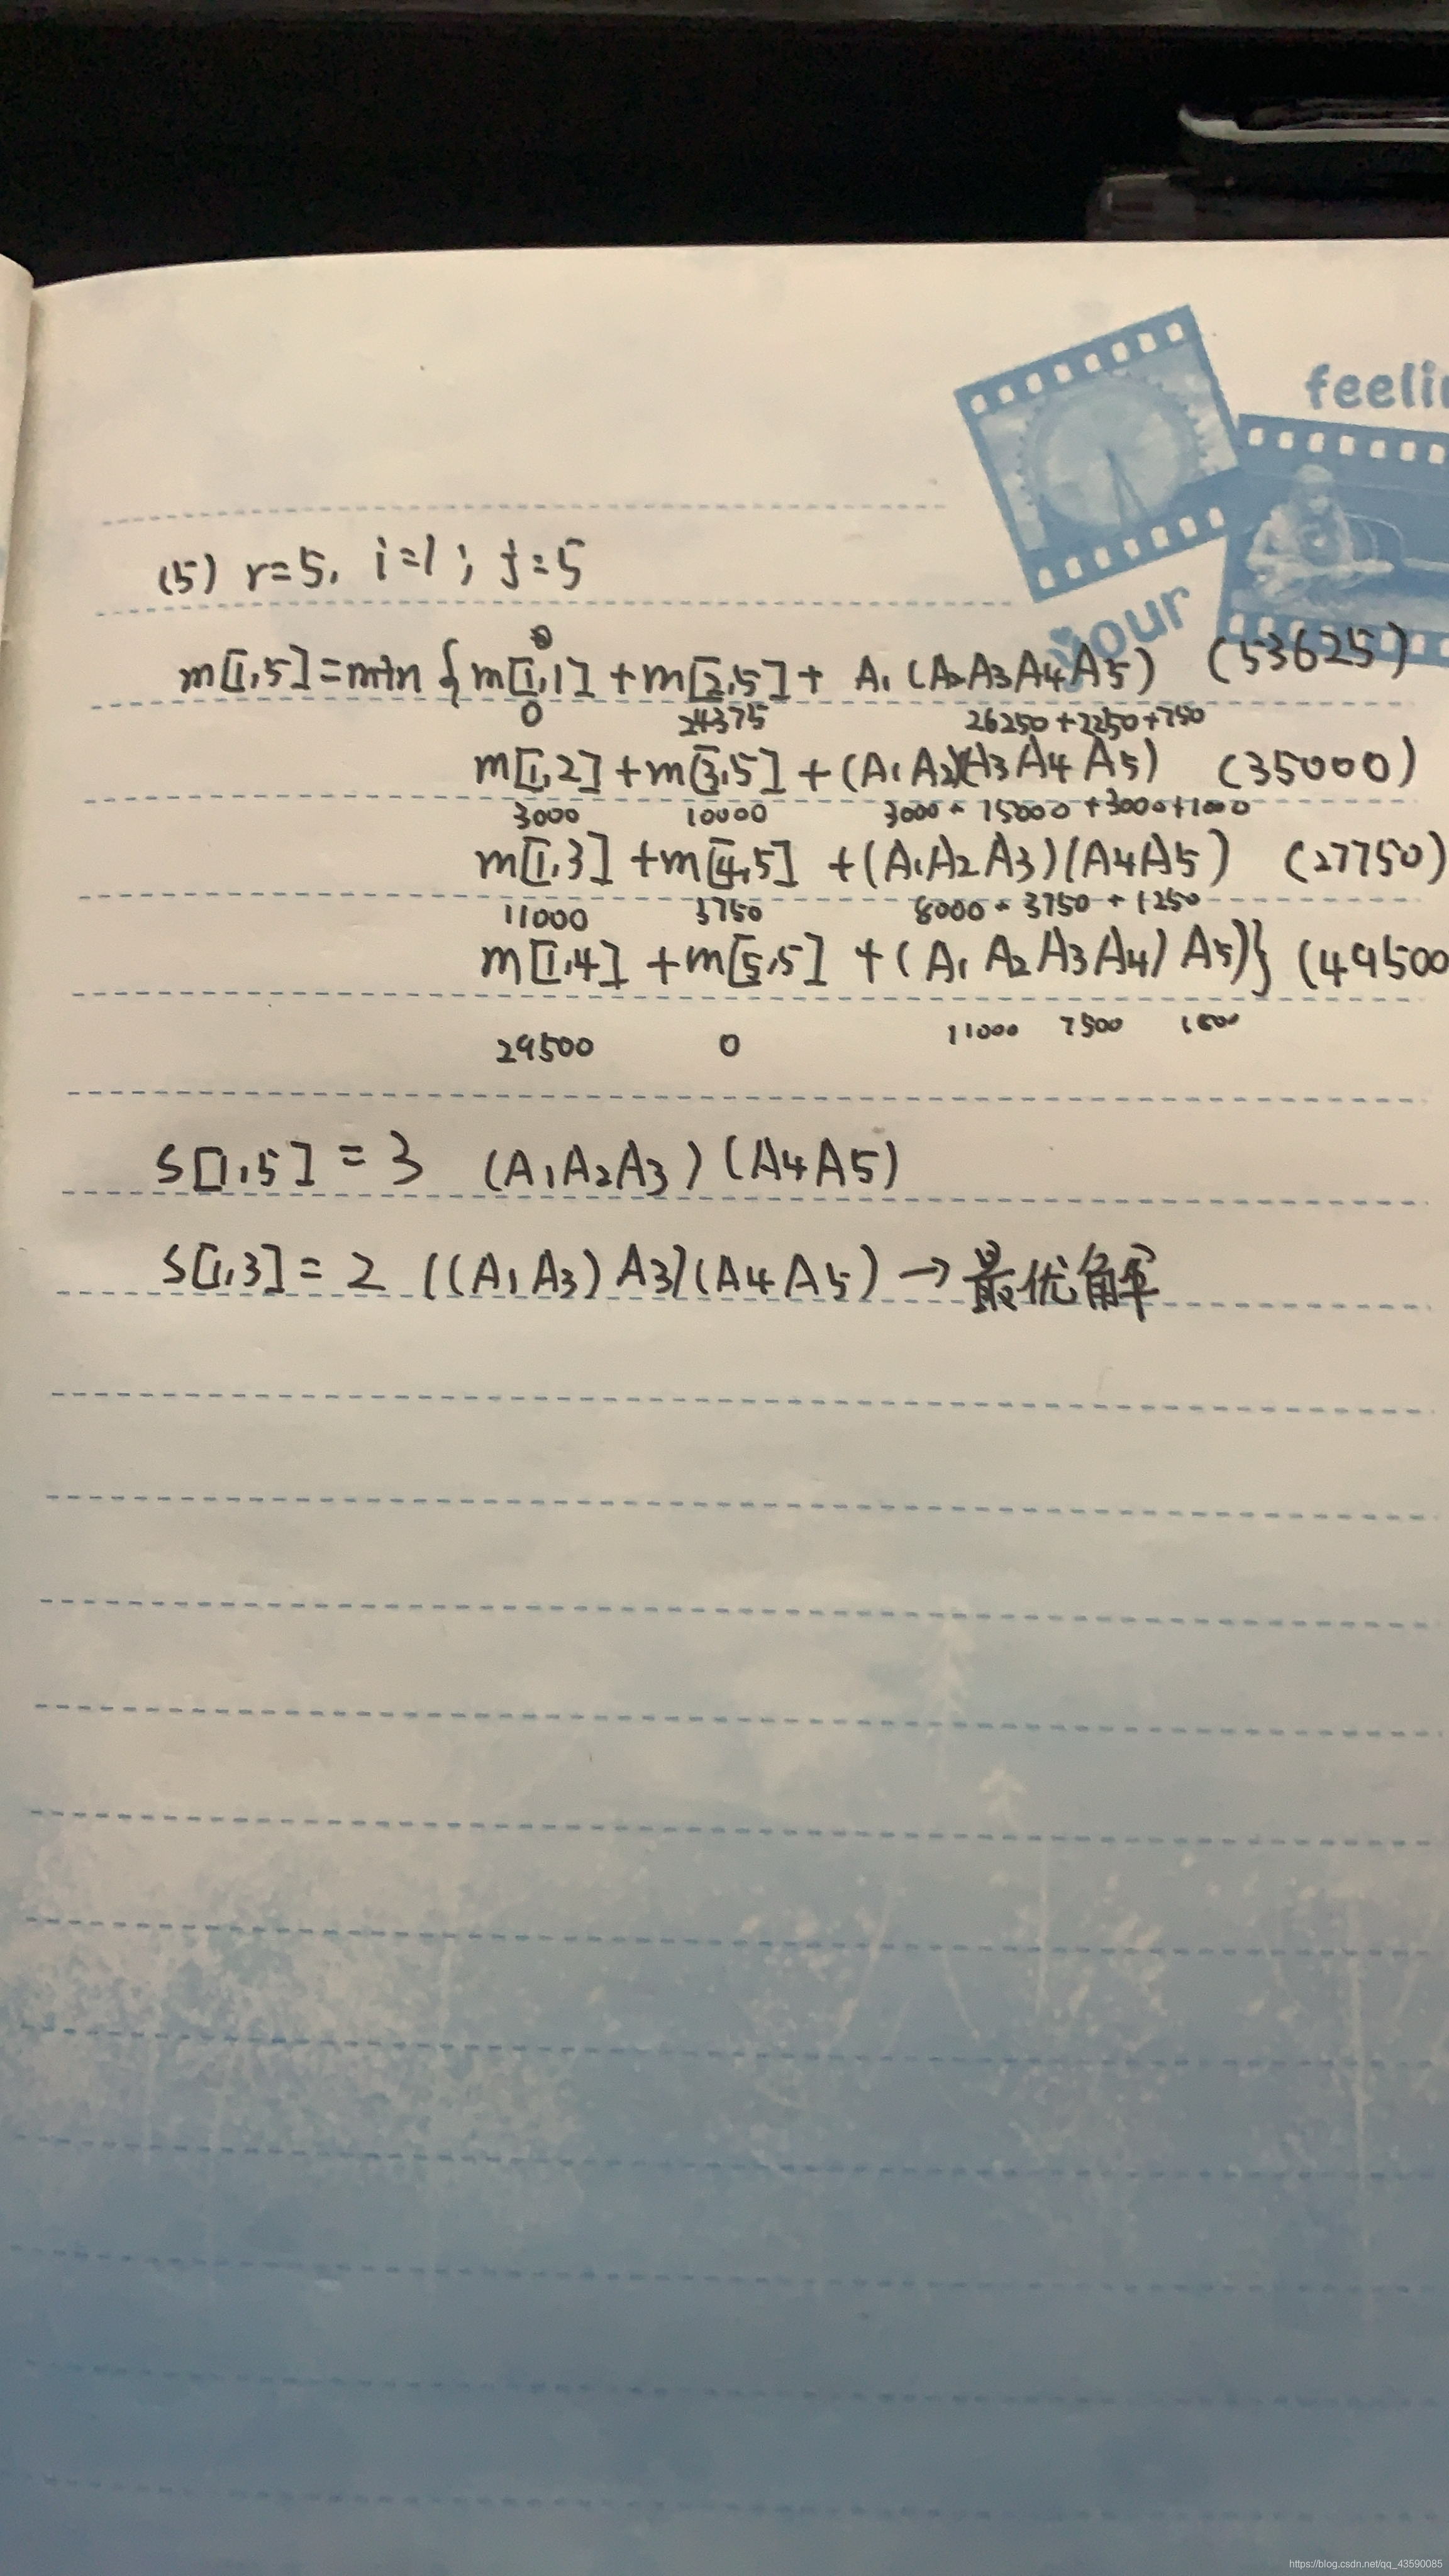 feelin
your
(5) r=5, i=1; j=5
0
m[1,5]=min {m[1,1] +m[2,5]+ A1(A2A3A4A5) (53625)
0 24375 26250+2250+750
m[1,2] +m[3,5] +(A1A2)(A3A4A5) (35000)
3000 10000 3000+15000+3000+1000
m[1,3] +m[4,5] +(A1A2A3)(A4A5) (27750)
11000 3750 8000+3750+1250
m[1,4] +m[5,5] +(A1A2A3A4)A5)} (49500
29500 0 11000 7500 1500
S[1,5] = 3 (A1A2A3)(A4A5)
S[1,3] = 2 ((A1A3)A3)(A4A5) → 最优解
https://blog.csdn.net/qq_43590085